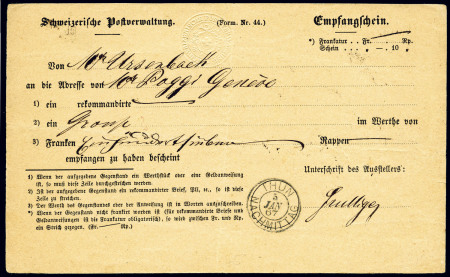 Schweizerische Postverwaltung. (Form. Nr. 44.) Empfangschein.
*) Frankatur .. Fr. Rp.
Schein .. — .. 10 „
Von Mr Ursenbach
an die Adresse von Mr Poggi Genève
1) ein rekommandirte
2) ein Group im Werthe von
3) Franken Rappen
empfangen zu haben bescheint
Unterschrift des Ausstellers:
1) Wenn der aufgegebene Gegenstand ein Werthstück oder eine Geldanweisung
ist, so muß diese Zeile durchstrichen werden.
2) Ist der aufgegebene Gegenstand ein rekommandirter Brief, so ist diese
Zeile zu streichen.
3) Der Werth des Gegenstandes oder der Anweisung ist in Worten auszuschreiben.
*) Wenn der Gegenstand nicht frankirt worden ist (für rekommandirte Briefe und
Geldanweisungen ist die Frankatur obligatorisch), so wird zwischen Fr. und Rp.
ein Strich gezogen. (Fr. — Rp.)
THUN
5
JAN
67
NACHMITTAG